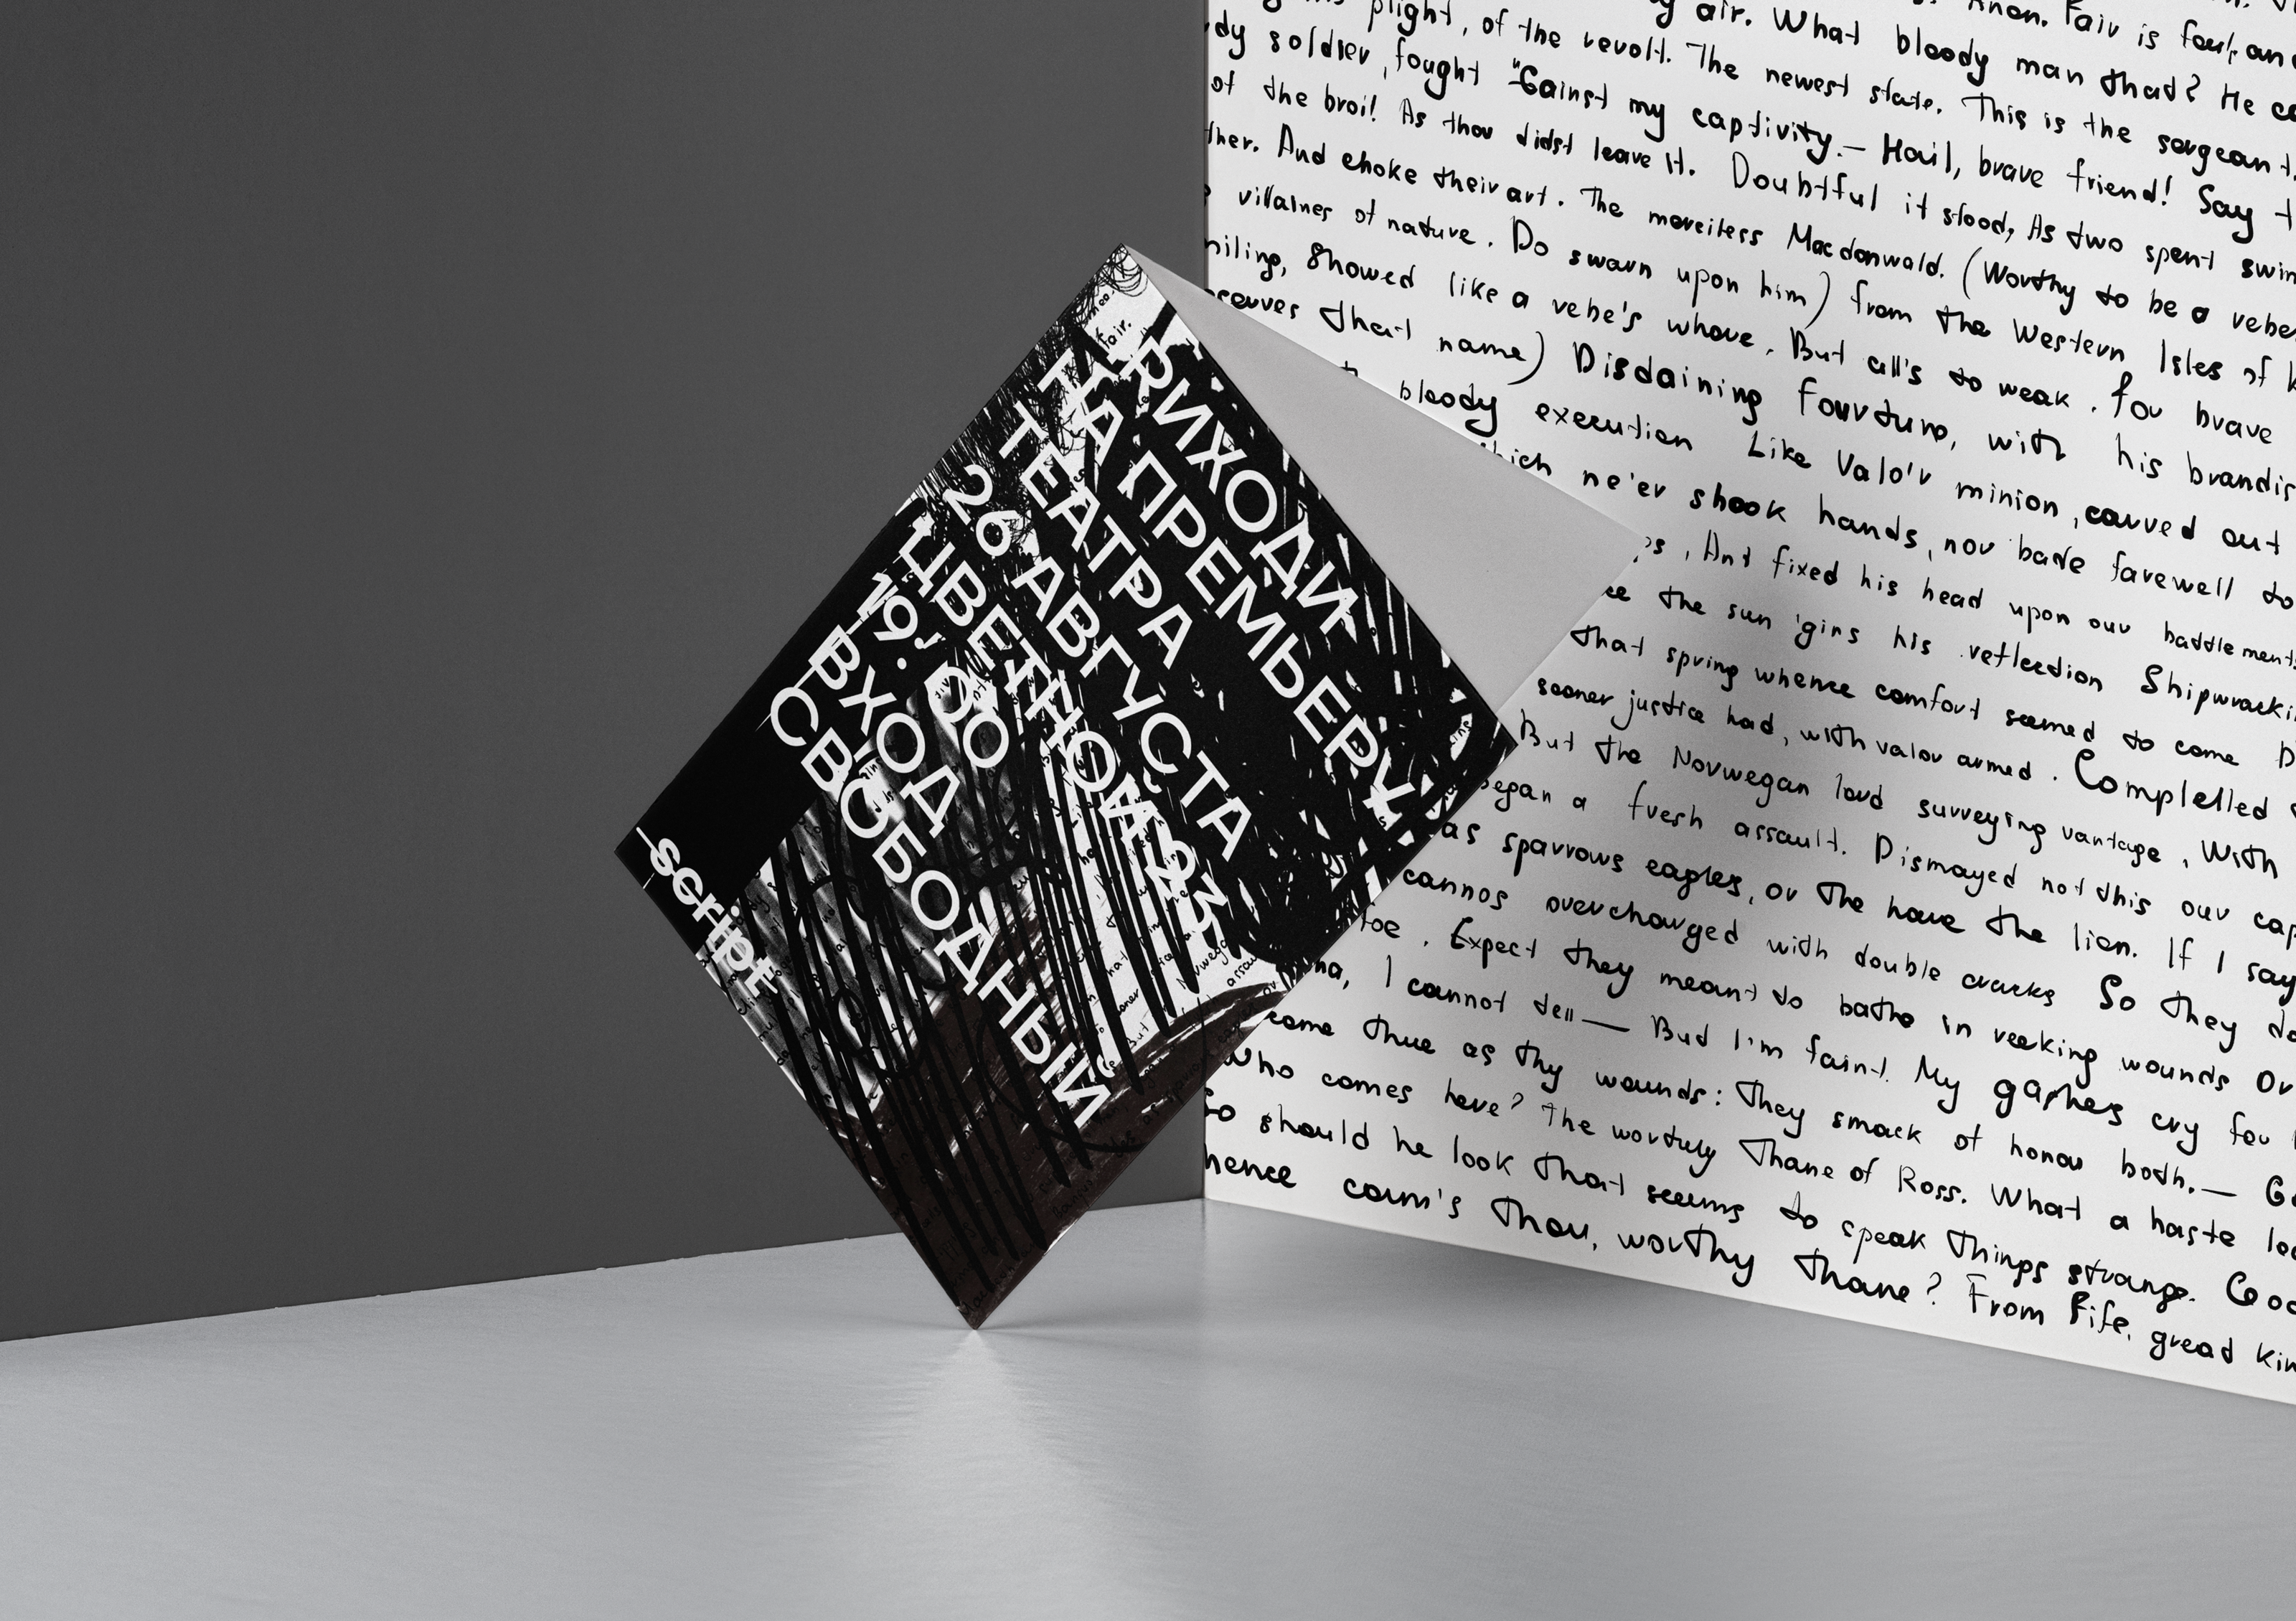 Anon. Fair is foul, and
air. What bloody man that? He ca
plight, of the revolt. The newest state. This is the sergeant,
dy soldier, fought "Gainst my captivity.— Hail, brave friend! Say t
of the broil! As thou didst leave it. Doubtful it stood, As two spent swim
ther. And choke their art. The merciless Macdonwald. (Worthy to be a rebe
villaines of nature. Do swarn upon him) from the Western Isles of k
miling, Showed like a rebe's whore. But all's to weak. for brave
serves that name) Disdaining fourtune, with his brandis
bloody execution Like Valo'r minion, carved out
hich ne'er shook hands, nor bade farewell to
ps, And fixed his head upon our battlements
ee the sun 'gins his reflection Shipwracki
that spring whence comfort seemed to come D
sooner justice had, with valor armed. Complelled
But the Norwegan lord surveying vantage, With
began a fresh assault. Dismayed not this our cap
as sparrows eagles, or the hare the lion. If I say
cannos overcharged with double cracks So they do
foe. Expect they meant to bathe in reeking wounds Or
na, I cannot tell — But I'm faint. My gashes cry for
come thue as thy wounds: They smack of honou both.— Go
Who comes here? The worthy Thane of Ross. What a haste loo
So should he look that seems to speak things strange. Goo
hence cam's thou, worthy thane? From Fife, gread kin
ПРИХОДИ
НА ПРЕМЬЕРУ
ТЕАТРА
26 АВГУСТА
ЦВЕТНОЙ
19:00
ВХОД
СВОБОДНЫЙ
script